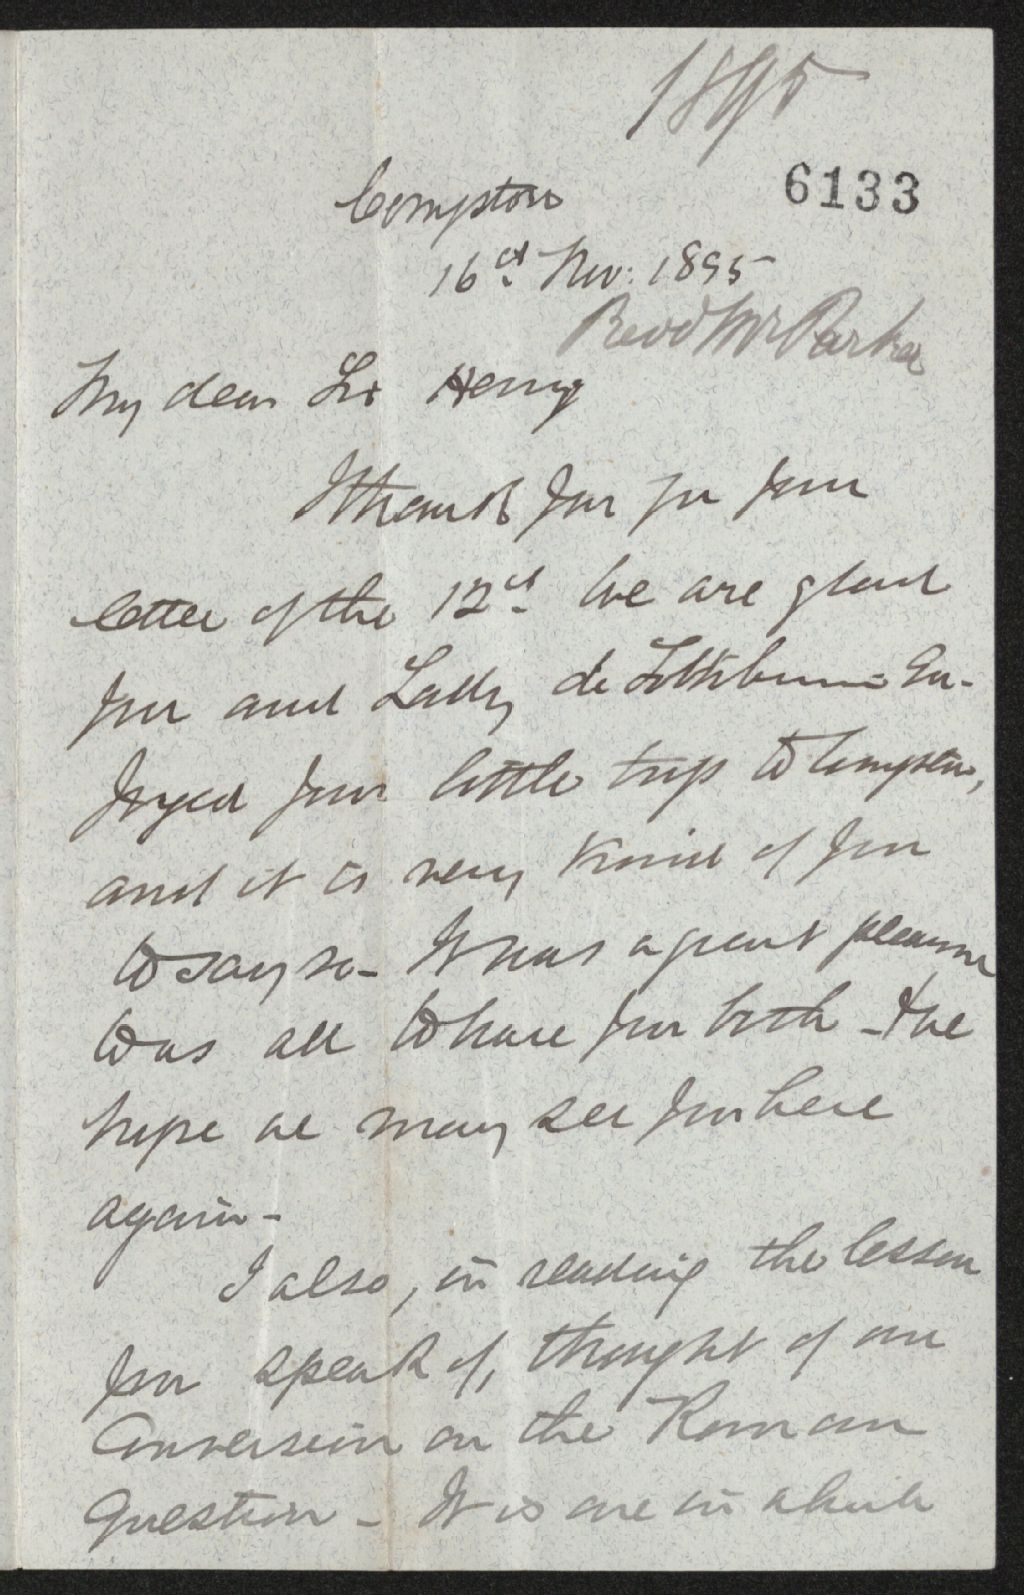 1895
6133
Compton
16th Nov: 1895
Revd Mr Parker
My dear Sir Henry
I thank you for your
letter of the 12th We are glad
you and Lady de Lotbiniere En-
joyed your little trip to Compton,
and it is very kind of you
to say so - It was a great pleasure
to us all to have you both - & we
hope we may see you here
again -
I also, in reading the lesson
you speak of, thought of our
Conversion on the Roman
Question - It is one in which